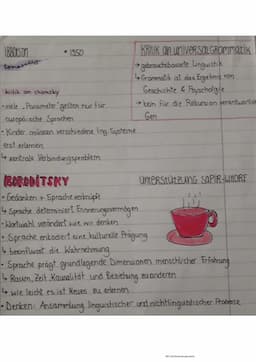 *1950
Kritik an Universalgrammatik
→ gebrauchsbasierte Linguistik
→ Grammatik ist das Ergebnis von
Geschichte & Psychologie
→ kein für die Rekursion verantwortliches
Gen
Kritik an Chomsky
- viele „Parameter" gelten nur für
europäische Sprachen
- Kinder müssen verschiedene ling. Systeme
erst erlernen
↳ zentrale Verbindungsproblem
BORODITSKY
UNTERSTÜTZUNG SAPIR-WHORF
- Gedanken & Sprache verknüpft
↳ Sprache determiniert Erinnerungsvermögen
- Wortwahl verändert wie wir denken
- Sprache enkodiert eine kulturelle Prägung
↳ beeinflusst die Wahrnehmung
- Sprache prägt grundlegende Dimensionen menschlicher Erfahrung
↳ Raum, Zeit, Kausalität und Beziehung zu anderen
↳ wie leicht es ist Neues zu erlernen
- Denken: Ansammlung linguistischer und nichtlinguistischer Prozesse